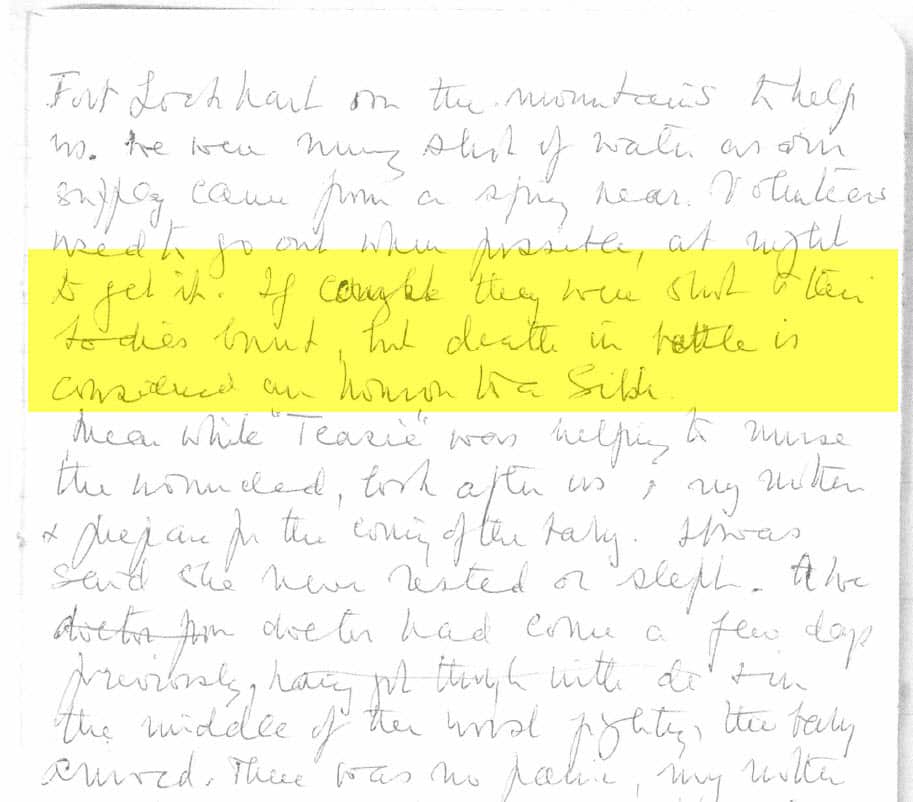 Fort Lockhart on the mountains to help
us. We were very short of water as our
supply came from a spring near. Volunteers
used to go out when possible, at night
to get it. If caught they were shot & their
bodies burnt, but death in battle is
considered an honour to a Sikh.
Mean while "Teasie" was helping to nurse
the wounded, look after us, my mother
& prepare for the coming of the baby. It was
said she never rested or slept. The
doctor from doctor had come a few days
previously, having got through with & in
the middle of the worst fighting, the baby
arrived. There was no panic, my mother